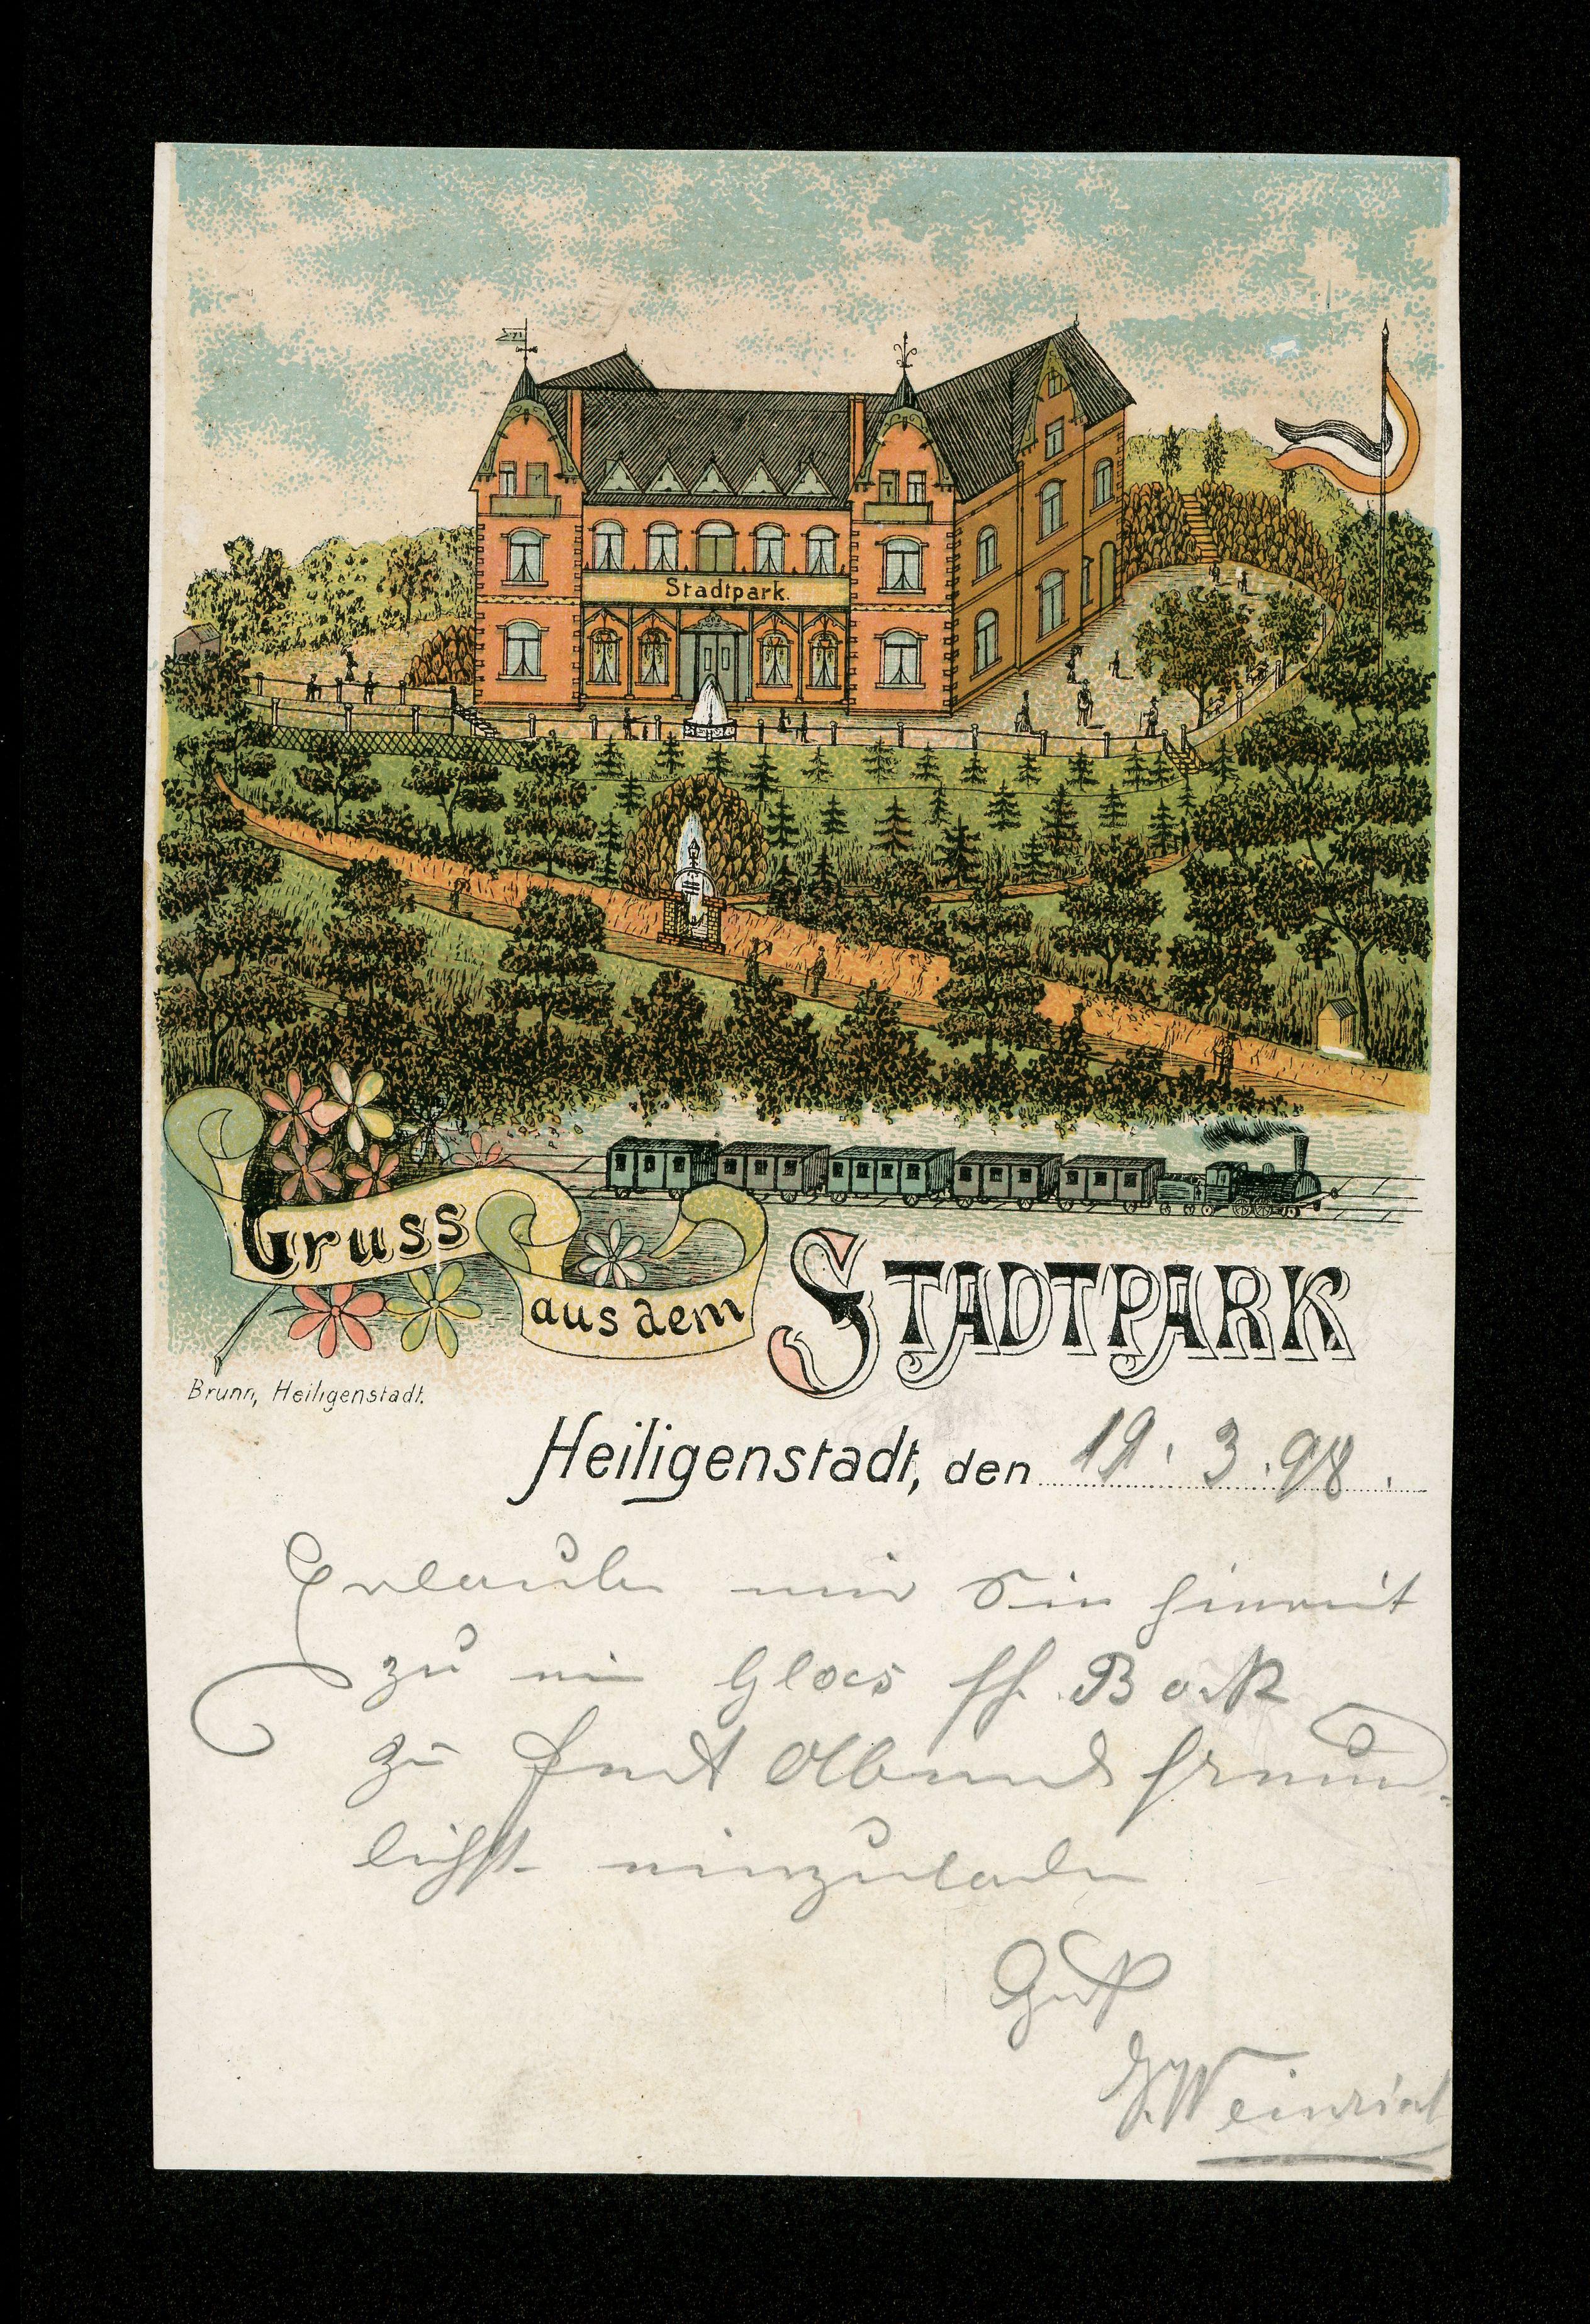 Stadtpark.
Gruss
aus dem
STADTPARK
Brunn, Heiligenstadt.
Heiligenstadt, den 19. 3. 98.
Erlaube mir Sie hiermit
zu ein Glas ff. Bock
zu heut Abend freund-
lichst einzuladen
Gruß
Weinrich